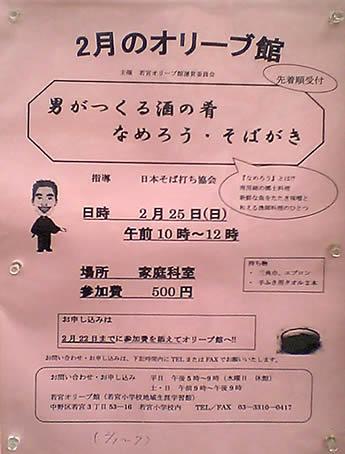 2月のオリーブ館
主催　若宮オリーブ館運営委員会
先着順受付
男がつくる酒の肴
なめろう・そばがき
指導　日本そば打ち協会
『なめろう』とは!?
南房総の郷土料理
新鮮な魚をたたき味噌と
和える漁師料理のひとつ
日時　２月２５日(日)
午前１０時～１２時
場所　家庭科室
参加費　５００円
持ち物
・三角巾、エプロン
・手ふき用タオル２本
お申し込みは
２月２２日までに参加費を添えてオリーブ館へ!!
お問い合わせ・お申し込みは、下記時間内にTELまたはFAXでお願いいたします。
お問い合わせ・お申し込み　平日　午後５時～９時（水曜日　休館）
土・日　午前９時～午後９時
若宮オリーブ館（若宮小学校地域生涯学習館）
中野区若宮３丁目５３－１６　若宮小学校内　TEL／FAX　０３－３３１０－０４１７